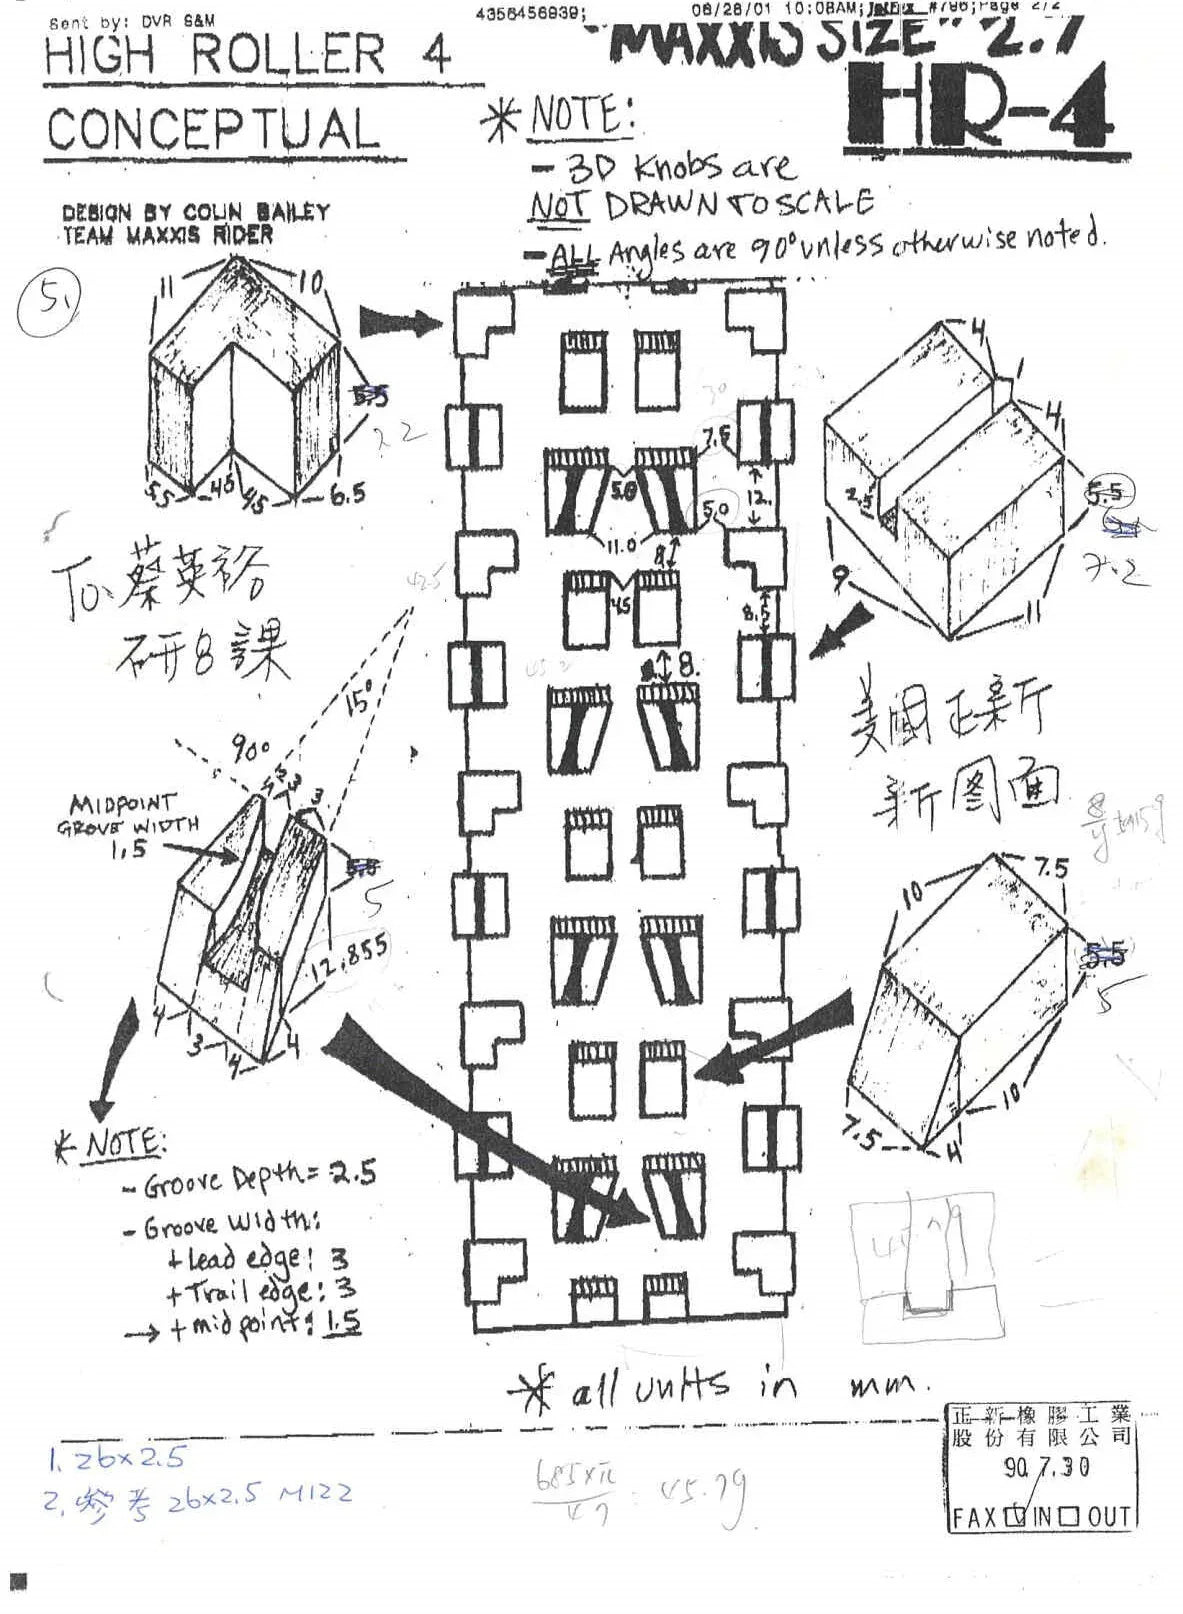 Sent by: DVR S&M
4356456939;
10:08AM;
#796;Page 2/2
HIGH ROLLER 4
CONCEPTUAL
"MAXXIS SIZE" 2.7
HR-4
DESIGN BY COLIN BAILEY
TEAM MAXXIS RIDER
* NOTE:
- 3D Knobs are
NOT DRAWN TO SCALE
- ALL Angles are 90° unless otherwise noted.
5.
11
10
5.5
5.5
45
45
6.5
4
1
4
2.5
5.5
7.2
9
11
7.5
5.0
5.0
12.
11.0
8
45
8.5
8.
To 蔡英裕
研8課
美國正新
新图面
15°
90°
MIDPOINT
GROVE WIDTH
1.5
3
3
5
12.855
4
3
4
4
10
7.5
5.5
5
10
7.5
4
* NOTE:
- Groove Depth = 2.5
- Groove Width:
+ Lead edge: 3
+ Trail edge: 3
→ + midpoint: 1.5
* all units in mm.
1. 26x2.5
2. 參考 26x2.5 M122
685xπ
47
45.79
正新橡膠工業
股份有限公司
90.7.30
FAX IN OUT